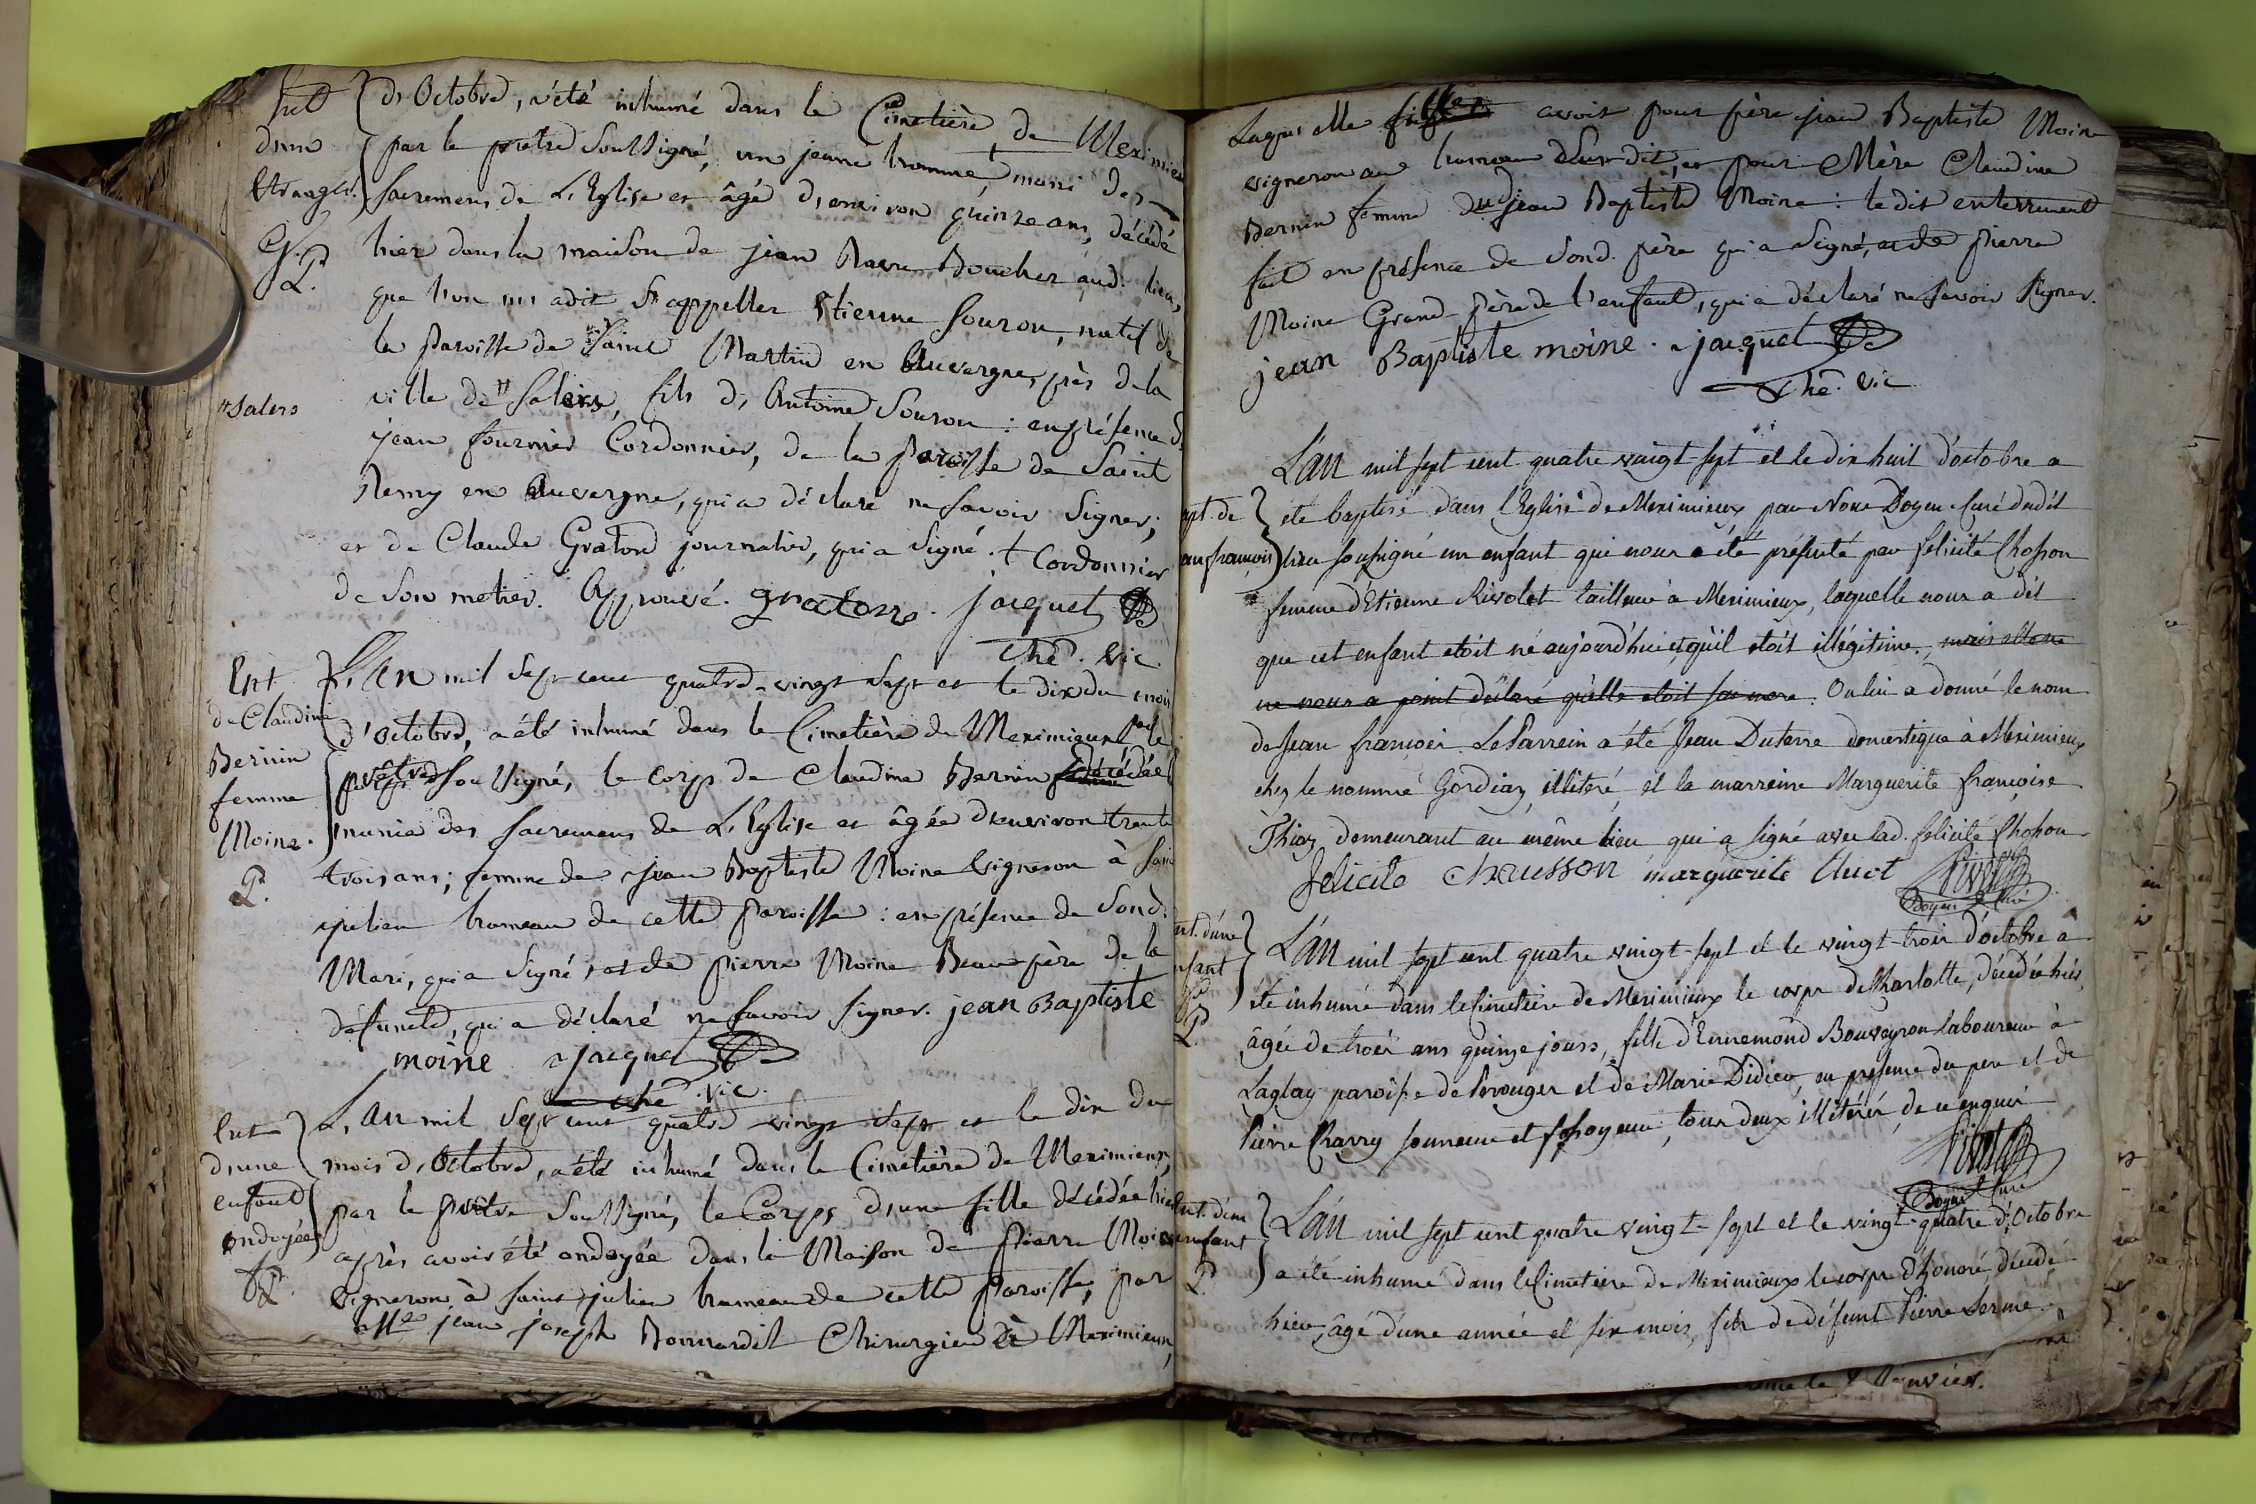 Ent
d'un
Etranger.
G. P.
d'Octobre, a été inhumé dans le Cimetière de Meximieu
par le prêtre Soussigné, un jeune homme, muni des
sacremens de L'Eglise et âgé d'environ quinze ans, décédé
hier dans la maison de jean Boucher aud. lieu,
que l'on m'a dit S'appeller Etienne Souron, natif de
la Paroisse de Saint Martin en Auvergne, près de la
"Salers
ville de " Salers, fils d'Antoine Souron : en présence de
jean fournier Cordonnier, de la Paroisse de Saint
Remy en Auvergne, qui a déclaré ne Savoir Signer;
et de Claude Graton journalier, qui a Signé. + Cordonnier
de Son metier. Approuvé. graton. jacquet
The. Vic
Ent
de Claudine
Bernin
femme
Moine.
P.
L'An mil Sept cent quatre-vingt Sept et le dix du mois
d'Octobre, a été inhumé dans le Cimetière de Meximieux par le
prêtre Soussigné, le Corps de Claudine Bernin décédée
munie des Sacremens de L'Eglise et âgée d'environ trente
trois ans; femme de Jean Baptiste Moine Vigneron à Saint
julien hameau de cette Paroisse : en présence de Sond.
Mari, qui a Signé, et de Pierre Moine Beau père de la
défuncte, qui a déclaré ne Savoir Signer. jean Baptiste
moine jacquet
The. Vic.
Ent
d'une
enfant
ondoyée
P.
L'An mil Sept cent quatre vingt Sept et le dix du
mois d'Octobre, a été inhumé dans le Cimetière de Meximieux,
par le prêtre Soussigné, le Corps d'une fille décédée hier
après avoir été ondoyée dans la Maison de Pierre Moine
Vigneron à Saint julien hameau de cette Paroisse, par
jean joseph Bonnardit Chirurgien à Meximieux,
Laquelle fille avoit pour père jean Baptiste Moine
vigneron au hameau Susdit, et pour Mère Claudine
Bernin femme dud. jean Baptiste Moine : le dit enterrement
fait en présence de Sond. père qui a Signé, et de Pierre
Moine Grand-père de l'enfant, qui a déclaré ne Savoir Signer.
jean Baptiste moine. jacquet
The. Vic
L'an mil sept cent quatre vingt-sept et le dix huit d'octobre a
pt. de
an françois
été baptisé dans l'Eglise de Meximieux par Nous Doyen Curé dudit
lieu soussigné un enfant qui nous a été présenté par felicité Chosson
femme d'Etienne Rivolet tailleur à Meximieux, laquelle nous a dit
que cet enfant etoit né aujourd'hui et qu'il etoit illégitime, mais elle ne
ne nous a point déclaré qu'elle etoit sa mere. On lui a donné le nom
de Jean françois. Le Parrein a été Jean Duterre domestique à Meximieux
chez le nommé Gordiaz, illitéré et la marreine Marguerite françoise
Thioz demeurant au même lieu qui a signé avec lad. felicité Chosson
felicite chausson marguerite
Doyen Curé
nt. d'une
nfant
P.
L'An mil sept cent quatre vingt-sept et le vingt-trois d'octobre a
été inhumé dans le Cimetiere de Meximieux le corps de Charlotte, décedée hier,
âgée de trois ans quinze jours, fille d'Ennemond Bouveyron laboureur à
Laglay paroisse de Perouges et de Marie Didieu, en présence du pere et de
Pierre Charry sonneur et fossoyeur, tous deux illitérés, de ce enquis
Doyen Curé
nt. d'un
enfant
P.
L'An mil sept cent quatre vingt-sept et le vingt-quatre d'Octobre
a été inhumé dans le Cimetiere de Meximieux le corps d'honoré, décédé
hier, âgé d'une année et six mois, fils de défunt Pierre